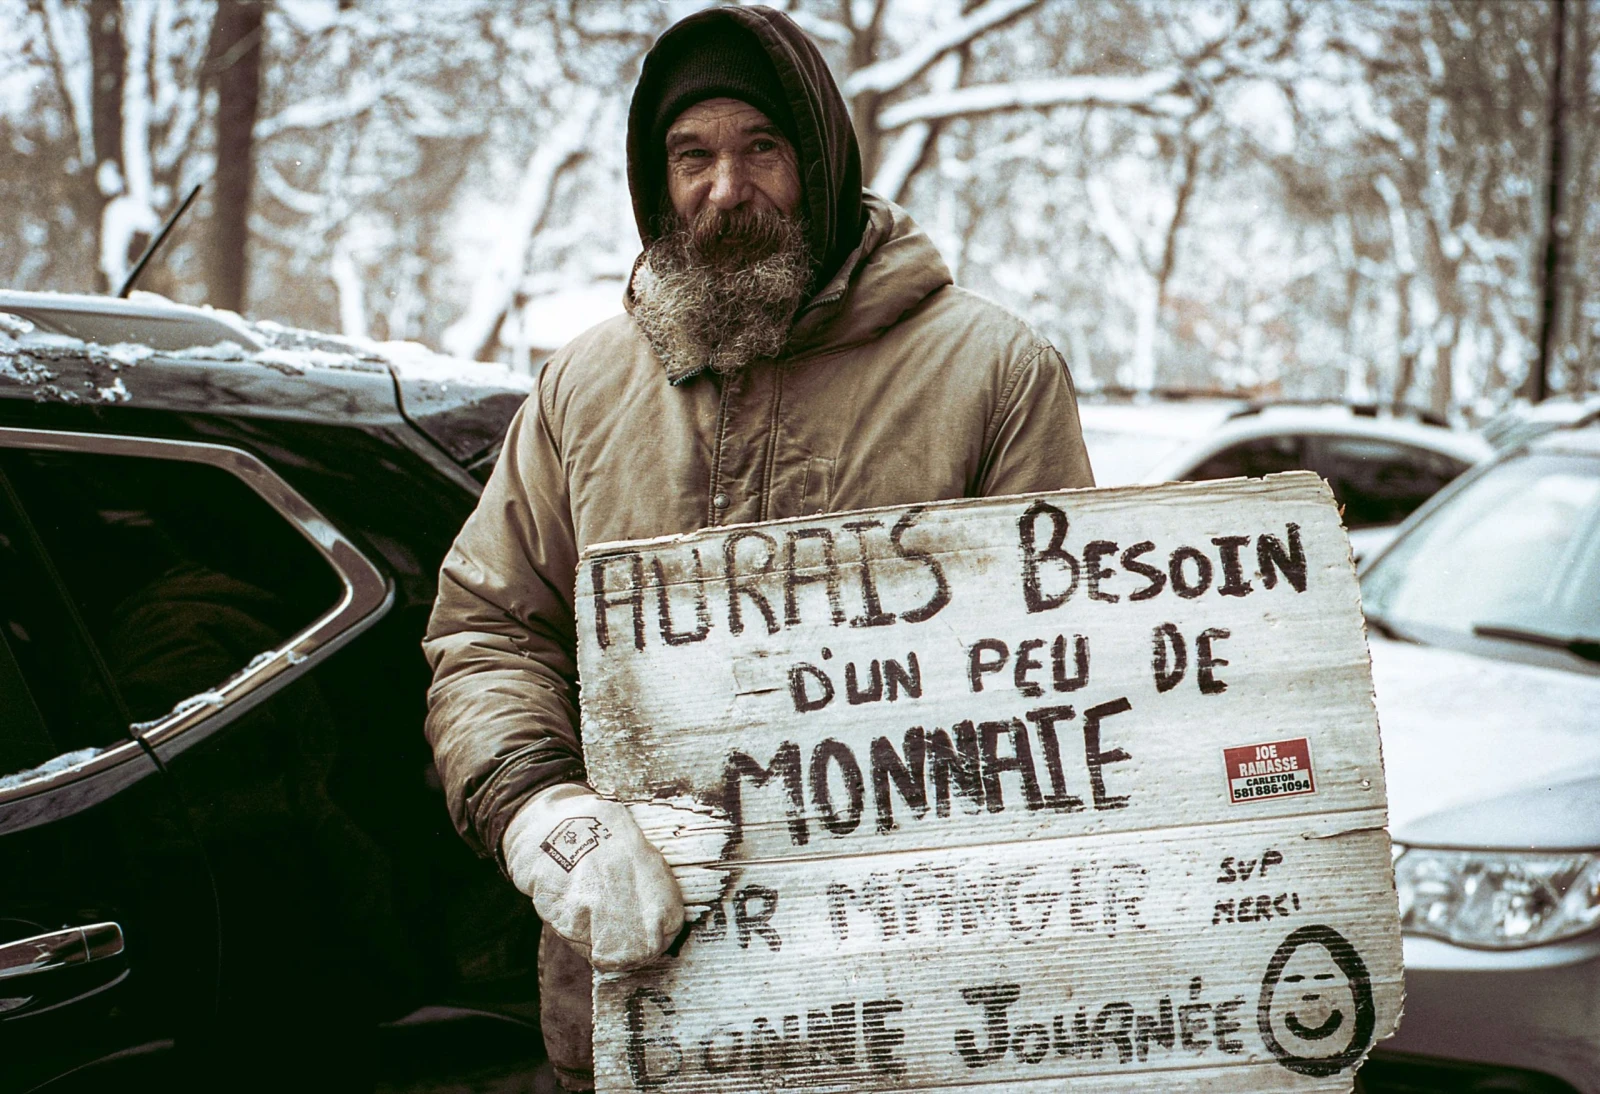 AURAIS BESOIN
D'UN PEU DE
MONNAIE
JOE
RAMASSE
CARLETON
581 886-1094
MANGER
SVP
MERCI
BONNE JOURNÉE